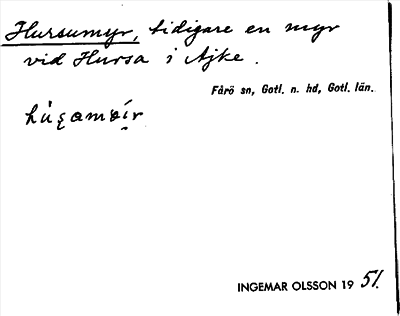 Hursumyr, tidigare en myr
vid Hursa i Ajke.
Fårö sn, Gotl. n. hd, Gotl. län.
INGEMAR OLSSON 19 51.